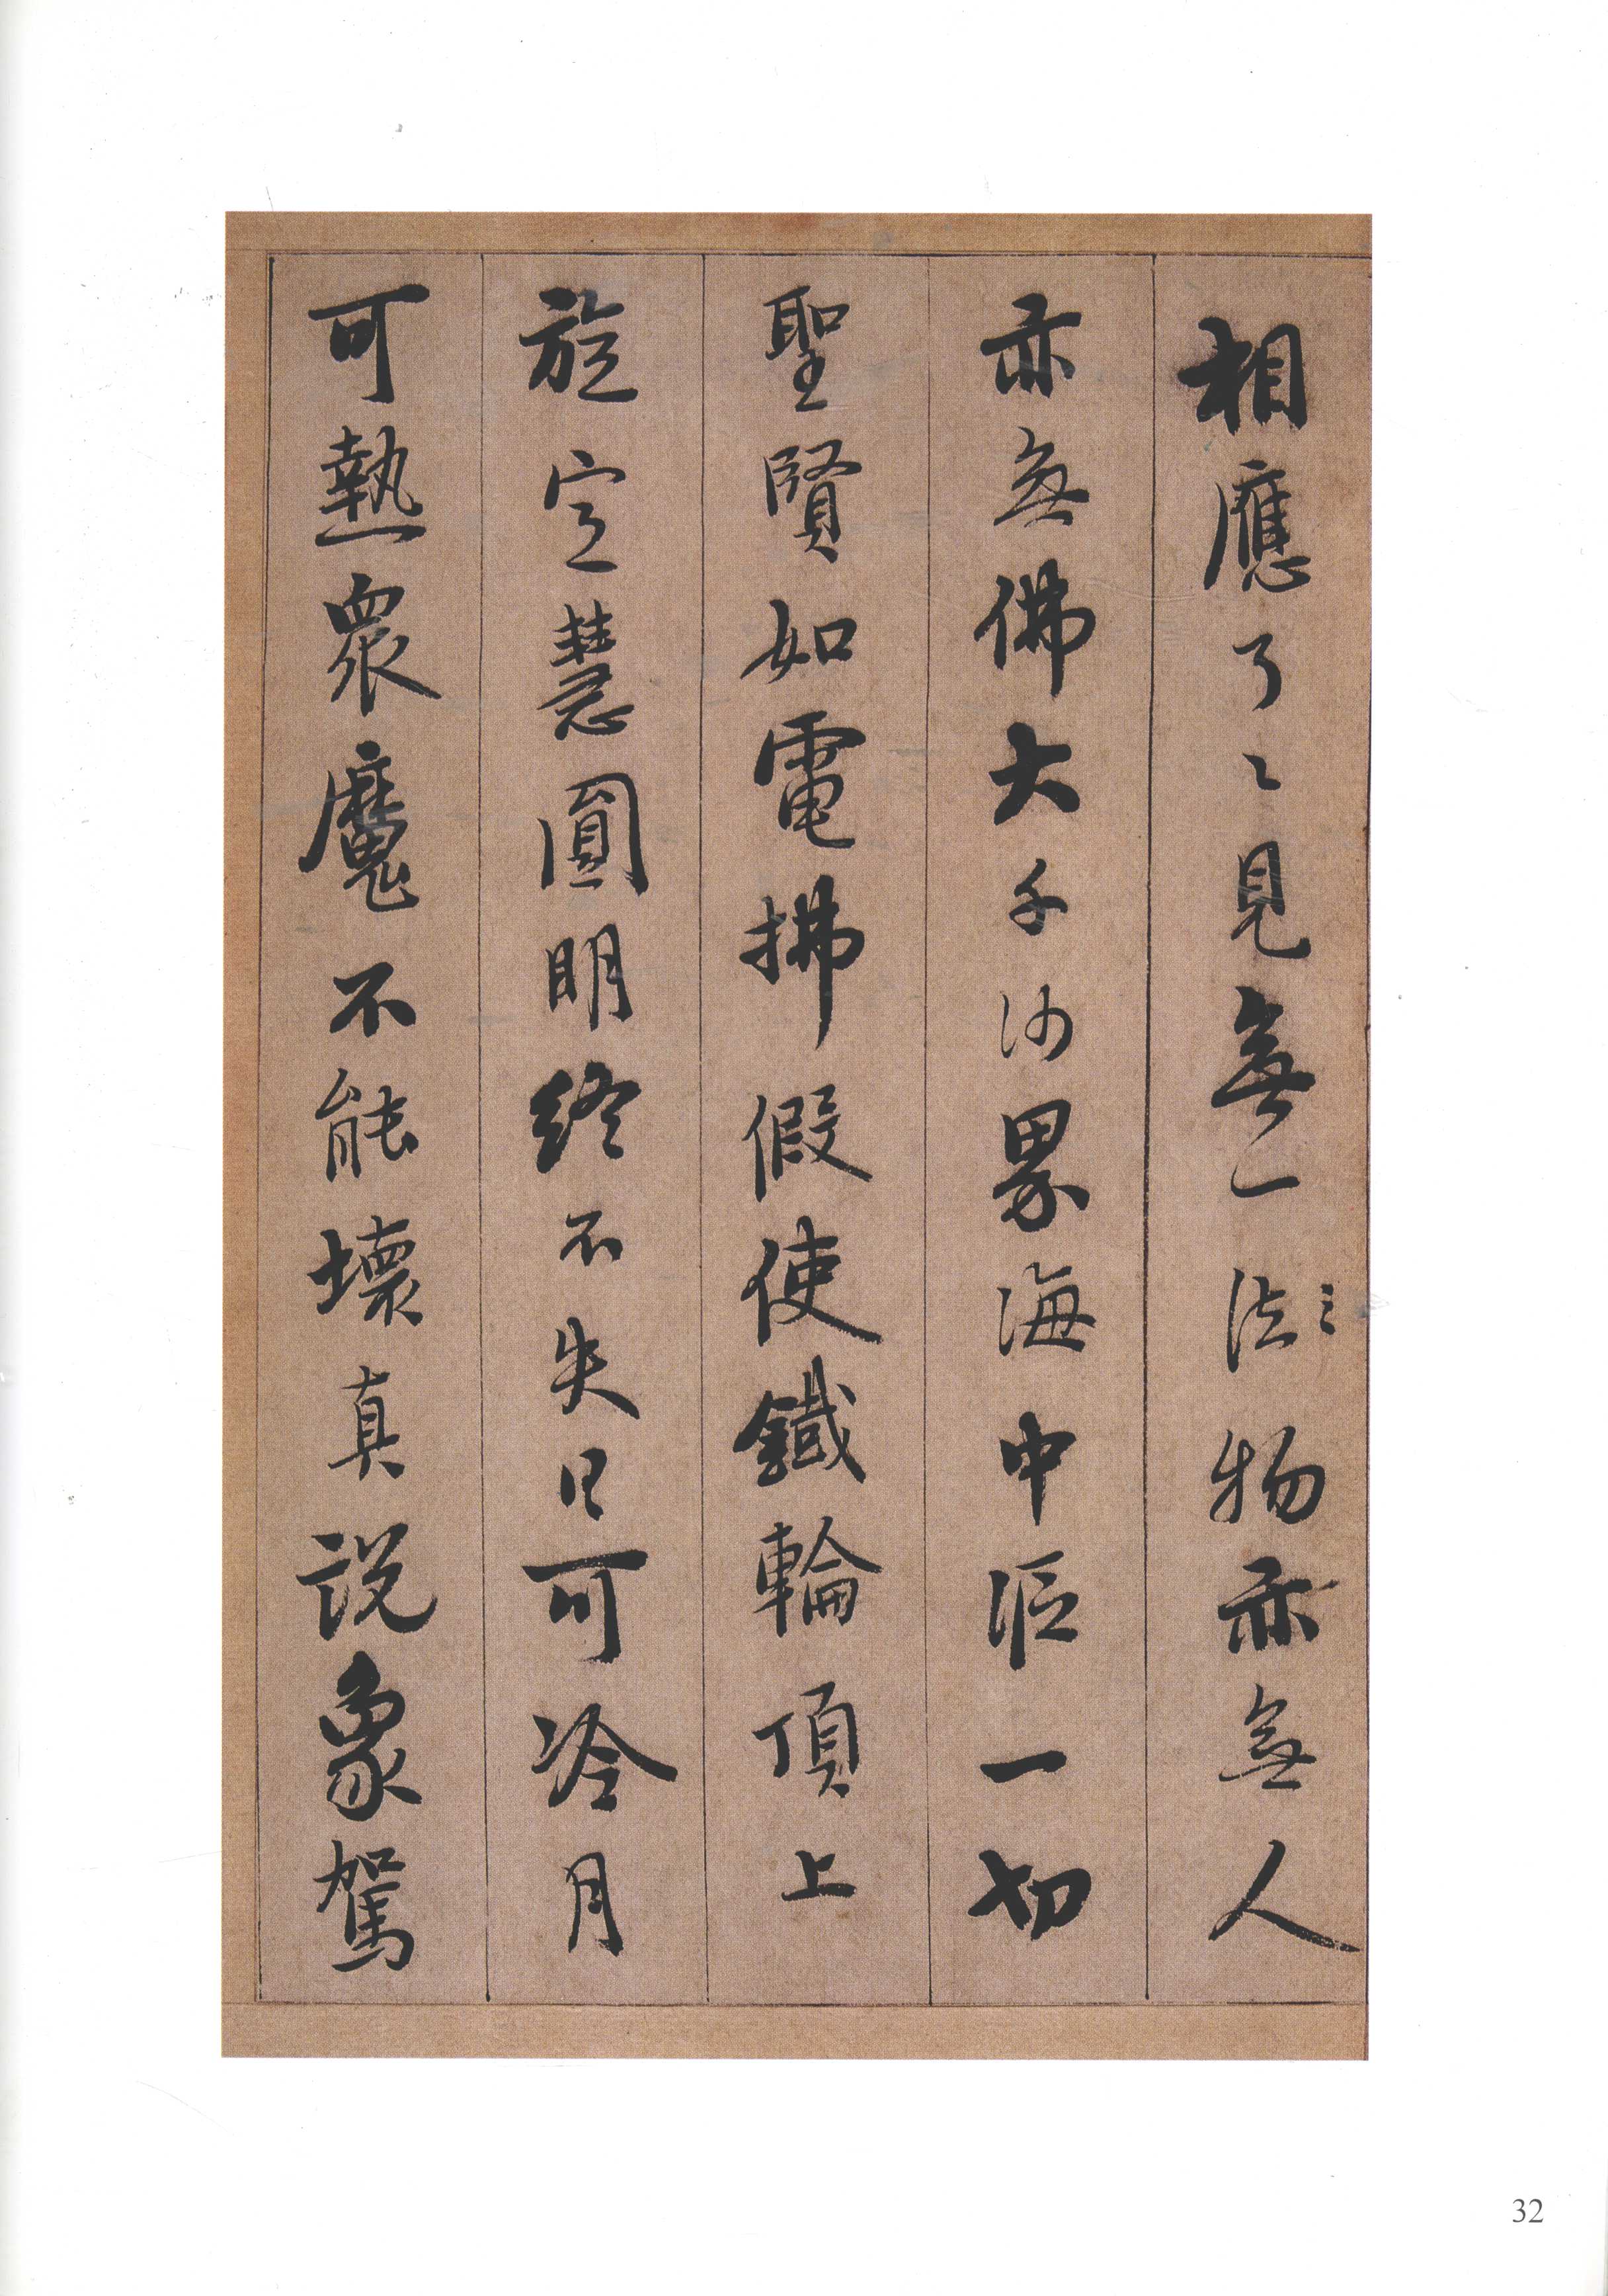 相應了〻見無一法〻物亦無人
亦無佛大千沙界海中漚一切
聖賢如電拂假使鐵輪頂上
旋定慧圓明終不失日可冷月
可熱眾魔不能壞真說象駕
32